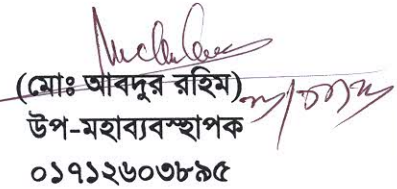 (মোঃ আবদুর রহিম)
উপ-মহাব্যবস্হাপক
০১৭১২৬০৩৮৯৫